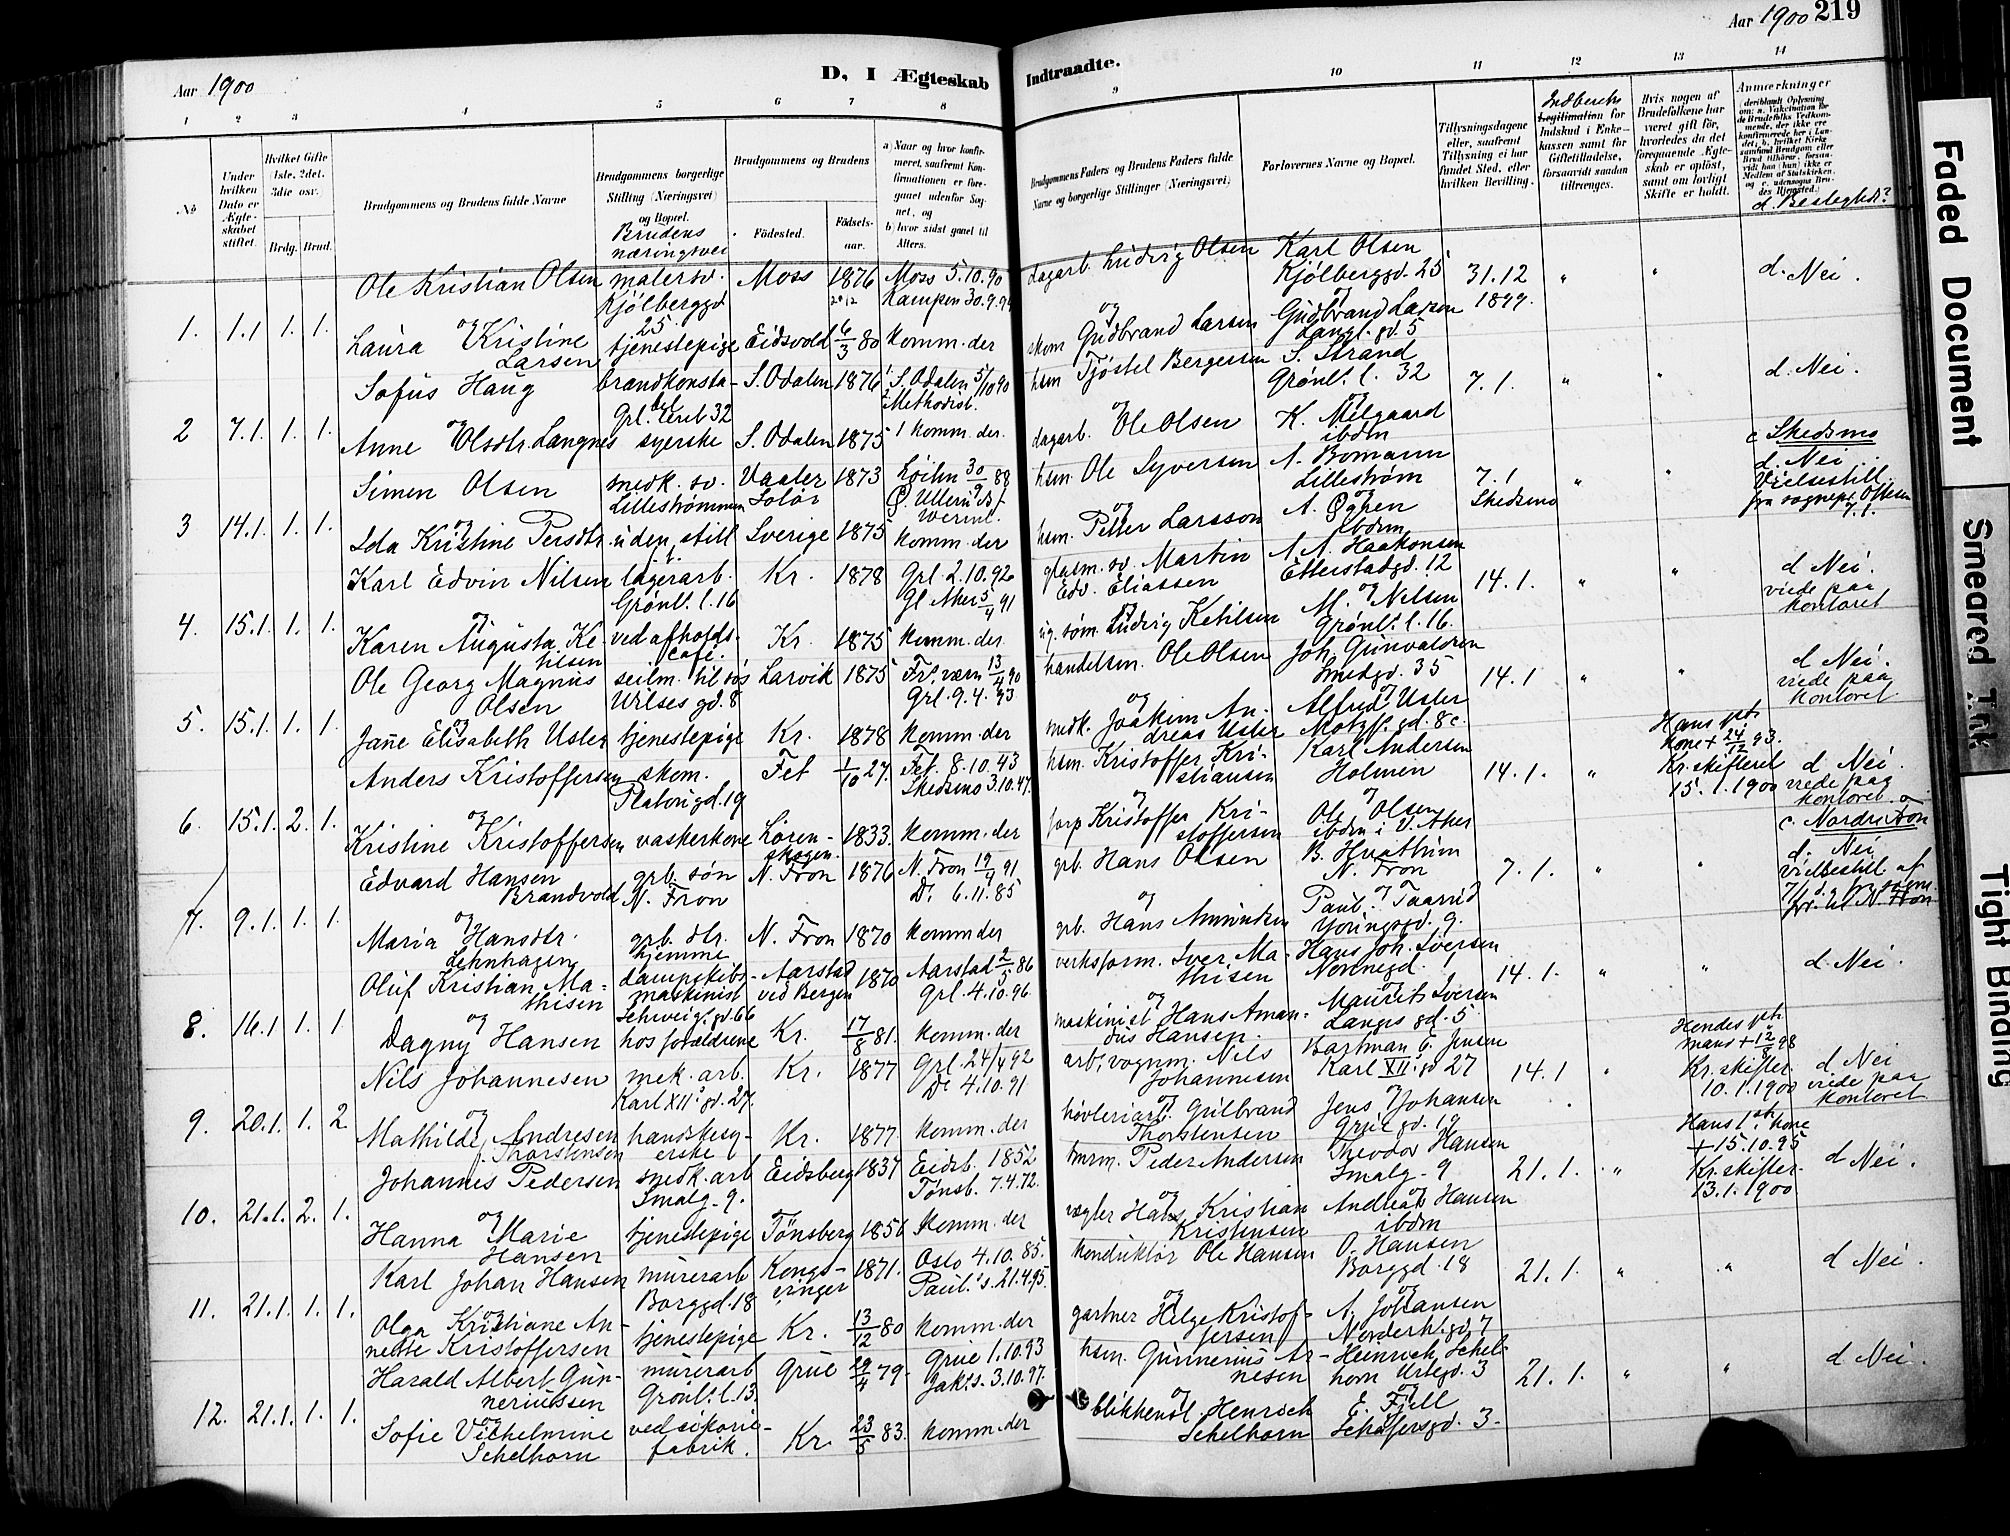 Aar 1900
D, I Ægteskab
Indtraadte.
Aar 1900 219
1 2 3 4 5 6 7 8
9 10 11 12 13 14
No
Under hvilken Dato er Ægteskabet stiftet.
Hvilket Gifte (1ste, 2det, 3die osv.
Brdg. Brud.
Brudgommens og Brudens fulde Navne
Brudgommens borgerlige Stilling (Næringsvei) og Bopæl.
Brudens næringsvei
Brudgommens og Brudens
Födested.
Födselsaar.
a) Naar og hvor konfirmeret, saafremt Konfirmationen er foregaaet udenfor Sognet, og
b) hvor sidst gaaet til Alters.
Brudgommens Faders og Brudens Faders fulde Navne og borgerlige Stillinger (Næringsvei)
Forlovernes Navne og Bopæl.
Tillysningsdagene eller, saafremt Tillysning ei har fundet Sted, efter hvilken Bevilling.
Legitimation for Indskud i Enkekassen samt for Giftetilladelse, forsaavidt saadan tiltrænges.
Hvis nogen af Brudefolkene har været gift før, hvorledes da det foregaaende Ægteskab er opløst, samt om lovligt Skifte er holdt.
Anmærkninger
d. Beslegtet?
1. 1.1 1. 1.
Ole Kristian Olsen malersv. Kjölberggd 25 Moss 1876 Moss 5.10.90
dagarb. Ludvig Olsen Karl Olsen Kjölberggd. 25 31.12 1899. " " d. Nei.
og
Laura Kristine Larsen tjenestepige Eidsvold 6/3 80 komm. der
skom Gudbrand Larsen Gudbrand Larsen Langl. gd. 5
2 7.1. 1. 1.
Sofus Haug brandkonstabel Grl. leret 32 S. Odalen 1876 S. Odalen 5/10 90 Methodist.
hsm Tjöstel Bergersen S. Strand Grönl. l. 32 7.1. " " d. Nei.
og
Anne Olsdtr. Langnes syerske S. Odalen 1875 komm. der.
dagarb. Ole Olsen K. Milgaard ibdm
3 14.1. 1. 1.
Simen Olsen smedk. sv. Lillestrømmen Vaaler Solör 1873 Löiten 30/9 88
hsm. Ole Syversen A. Bomann Lillestrøm 7.1 Skedsmo " " c Skedsmo d. Nei.
og
Ida Kristine Persdtr. uden still Sverige 1875 komm. der
hsm. Petter Larsson ibdm
4. 15.1. 1. 1.
Karl Edvin Nilsen lagerarb. Grönl. l. 16 Kr. 1878 Grl. 2.10.92 Gl Aker 5/4 91
glasm. sv. Martin Edv. Eliassen A. A. Haakonsen Etterstadgd. 12 14.1. " " d Nei. viede paa kontoret
og
Karen Augusta Ketilsen ved afholds. café. Kr. 1875 komm. der
Ludvig Ketilsen M. Nilsen Grönl. l. 16.
5. 15.1. 1. 1.
Ole Georg Magnus Olsen seilm. til søs Wilses gd. 8 Larvik 1875 Fr. værn 13/4 90 Grl. 9.4.93
handelsm. Ole Olsen Joh. Gunvaldsen Smedgd. 35 14.1 " " d Nei. viede paa kontoret
og
Jane Elisabeth Uster tjenestepige Kr. 1878 komm. der
smedk. Joakim Andreas Uster Alfred Uster Motzf. gd. 8c.
6. 15.1. 2. 1.
Anders Kristoffersen skom. Platougd. 19 Fet 1/10 27. Fet. 8.10.43 Skedsmo 3.10.47.
hsm. Kristoffer Kristiansen Karl Andersen Holmen 14.1. " Hans kone + 24/12 93. Kr. skifteret 15.1.1900 d Nei. viede paa kontoret
og
Kristine Kristoffersen vaskerkone Lörenskogen 1833. komm. der
Kristoffer Kristoffersen Ole Olsen ibdm i V. Aker
7. 9.1. 1. 1.
Edvard Hansen Brandvold grb. sön N. Fron N. Fron 1876 N. Fron 19/4 91 Do 6.11.85
grb. Hans Olsen B. Hvattum N. Fron 7.1. " " c. Nordre Fron d. Nei
og
Maria Hansdtr. Lehnhagen grb. dtr. hjemme N. Fron 1870 komm der
grb. Hans Amundsen Paul Taarud Youngsgd. 9.
8. 14.1 1. 1
Oluf Kristian Mathisen dampskibsmaskinist Schweig. gd. 66 Aarstad ved Bergen 1870 Aarstad 2/5 86 Grl. 4.10.96
verksform. Iver Mathisen Hans Joh. Iversen Nonnegd. 1 14.1. " " d. Nei.
og
Dagny Hansen hos forældrene Kr. 17/8 81. komm. der
maskinist Hans Amandus Hansen. Maurits Iversen Langes gd. 5
9. 20.1. 1. 2
Nils Johannesen mek. arb. Karl XII's gd. 27. Kr. 1877 Grl. 24/4 92 Do 4.10.91
arb. i vognm. Nils Johannesen Bartman E. Jensen Karl XII's gd 27 14.1 " Hendes mand + 12/9 98 Kr. skifter. 10.1.1900 d Nei viede paa kontoret
og
Mathilde Andresen f. Thorstensen handskesyerske Kr. 1877. komm. der
høvleriarb. Gulbrand Thorstensen Jens Johansen
10. 21.1. 2. 1.
Johannes Pedersen smedk. arb Smalg. 9. Eidsberg 1837 Eidsb. 1852 Tønsb. 7.4.72.
tmrm. Peder Andersen Theodor Hansen Smalg. 9 21.1. " Hans 1ste kone + 15.10.95 Kr. skifter. 13.1.1900 d Nei.
og
Hanna Marie Hansen tjenestepige Tönsberg 1856 komm. der
vægter Hans Kristian Kristensen Andreas Hansen ibdm
11. 21.1. 1. 1.
Karl Johan Hansen murerarb Borggd. 18 Kongsvinger 1871. Oslo 4.10.85. Paul. s. 21.4.95.
konduktör Ole Hansen O. Hansen Borggd. 18 21.1. " " d Nei.
og
Olga Kristiane Annette Kristoffersen tjenestepige Kr. 13/12 80 komm. der
gartner Helge Kristoffersen A. Johansen Norderh. gd 7
12. 21.1. 1. 1.
Harald Albert Gunneriussen murerarb Grönl. l. 13. Grue 29/4 79. Grue 1.10.93 Jak. s. 3.10.97.
hsm. Gunnerius Arnesen Heinrich Schelhorn Urtegd. 3 21.1. " " d Nei.
og
Sofie Vilhelmine Schelhorn ved cikoriefabrik. Kr. 23/5 83. komm. der
blikkensl. Henrich Schelhorn E. Fjell Schäfersgd. 3.
Faded Document
Smeared Ink
Tight Binding